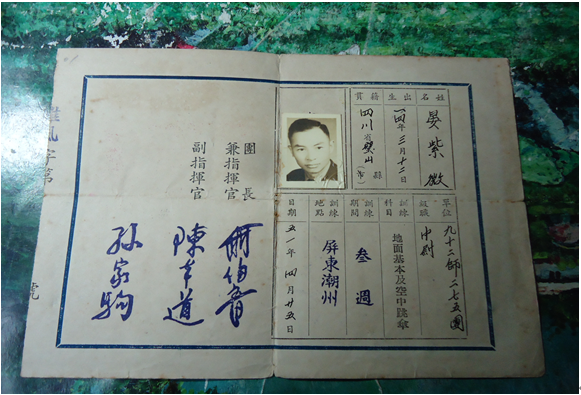 姓名
晏紫
出生
一四年三月十二日
籍貫
四川省璧山縣
(市)
單位
九十二師二七五團
級職
中尉
訓練科目
地面基本及空中跳傘
訓練期間
叁週
訓練地點
屏東潮州
日期
五一年四月廿五日
團長
兼指揮官
副指揮官
伯音
陳道
孫家駒
字第
號